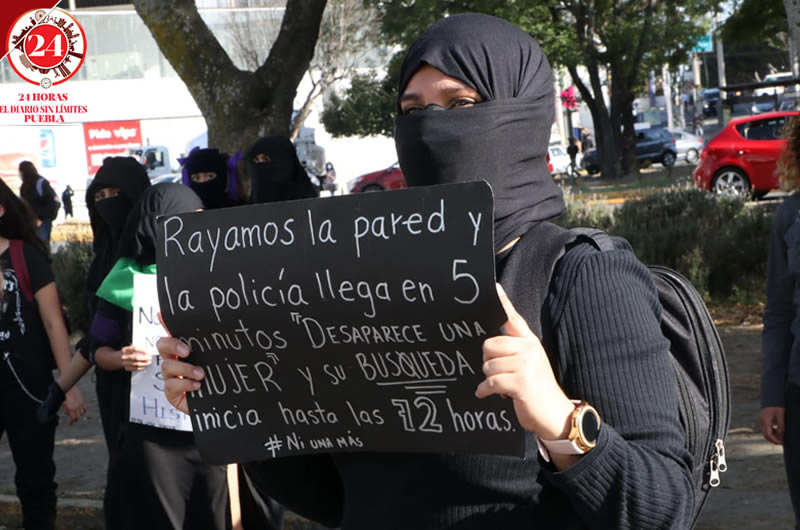 24
24 HORAS
EL DIARIO SIN LÍMITES
PUEBLA
Pide más
pepsi
Rayamos la pared y
la policía llega en 5
minutos "DESAPARECE UNA
MUJER" y su BUSQUEDA
inicia hasta las 72 horas.
#Ni una más